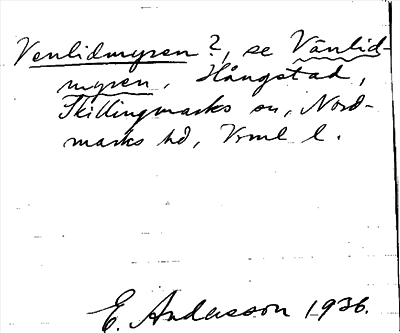 Venlidmyren?, se Vänlid-
myren, Hångstad,
Skillingmarks sn, Nord-
marks hd, Vrml l.
E. Andersson 1936.